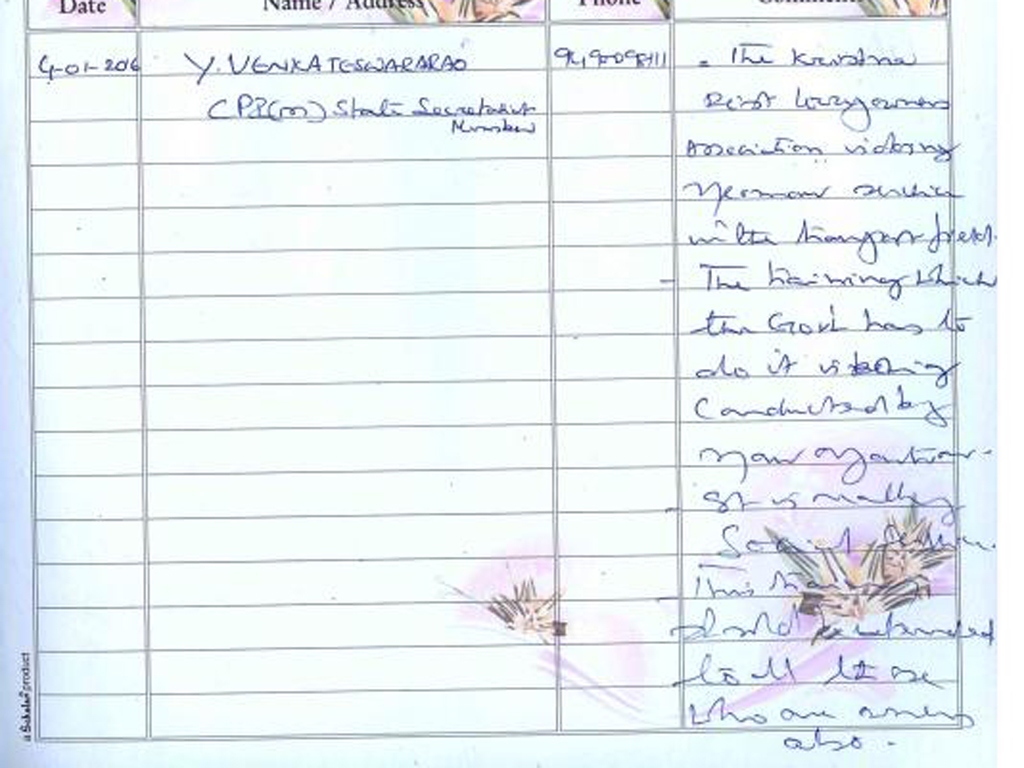 Date Name / Address Phone
4-01-2016 Y. VENKATESWARARAO - The Krishna
CPI(M) State Secretariat Dist Lorryowners
Member
Association
service
in the transport field.
- The training which
the Govt has to
do it is being
Conducted by
your
- It is really
Social Service.
- This
should be extended
to all those
who are owners
also.
Sakalas product